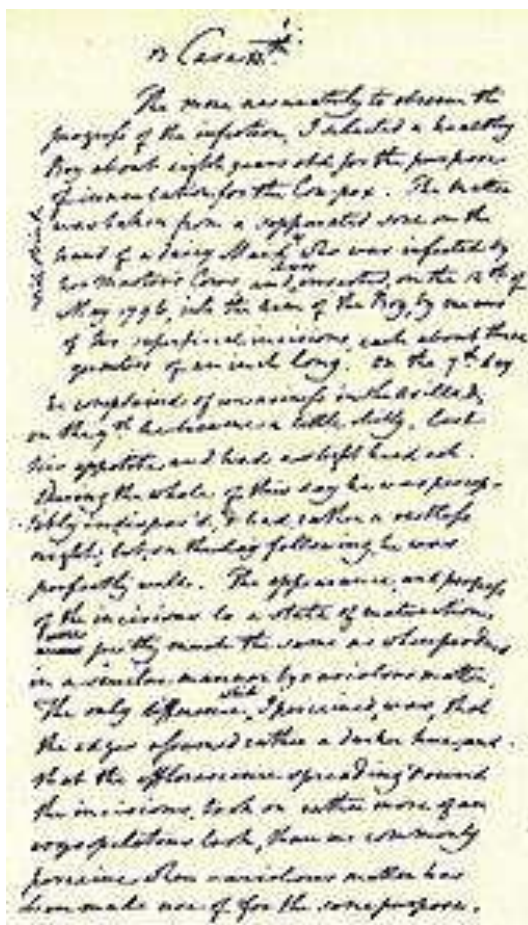 Case
The more accurately to observe the
progress of the infection, I selected a healthy
Boy about eight years old for the purpose
of inoculation for the Cow pox. The matter
was taken from a suppurated sore on the
hand of a dairy Maid, who was infected by
her Masters Cows, and inserted, on the 14th of
May 1796, into the arm of the Boy, by means
of two superficial incisions, each about three
quarters of an inch long. On the 7th day
he complained of uneasiness in the axilla &
on the 9th he became a little chilly, lost
his appetite and had a slight head ach.
During the whole of this day he was percep-
tibly indispos'd, & had rather a restless
night; but, on the day following, he was
perfectly well. The appearance and progress
of the incisions to a state of maturation
were pretty much the same as when produc'd
in a similar manner by variolous matter.
The only difference, I perceived, was, that
the edges assumed rather a darker hue, and
that the efflorescence spreading round
the incisions, took on rather more of an
erysipelatous look, than we commonly
perceive when variolous matter has
been made use of for the same purpose.